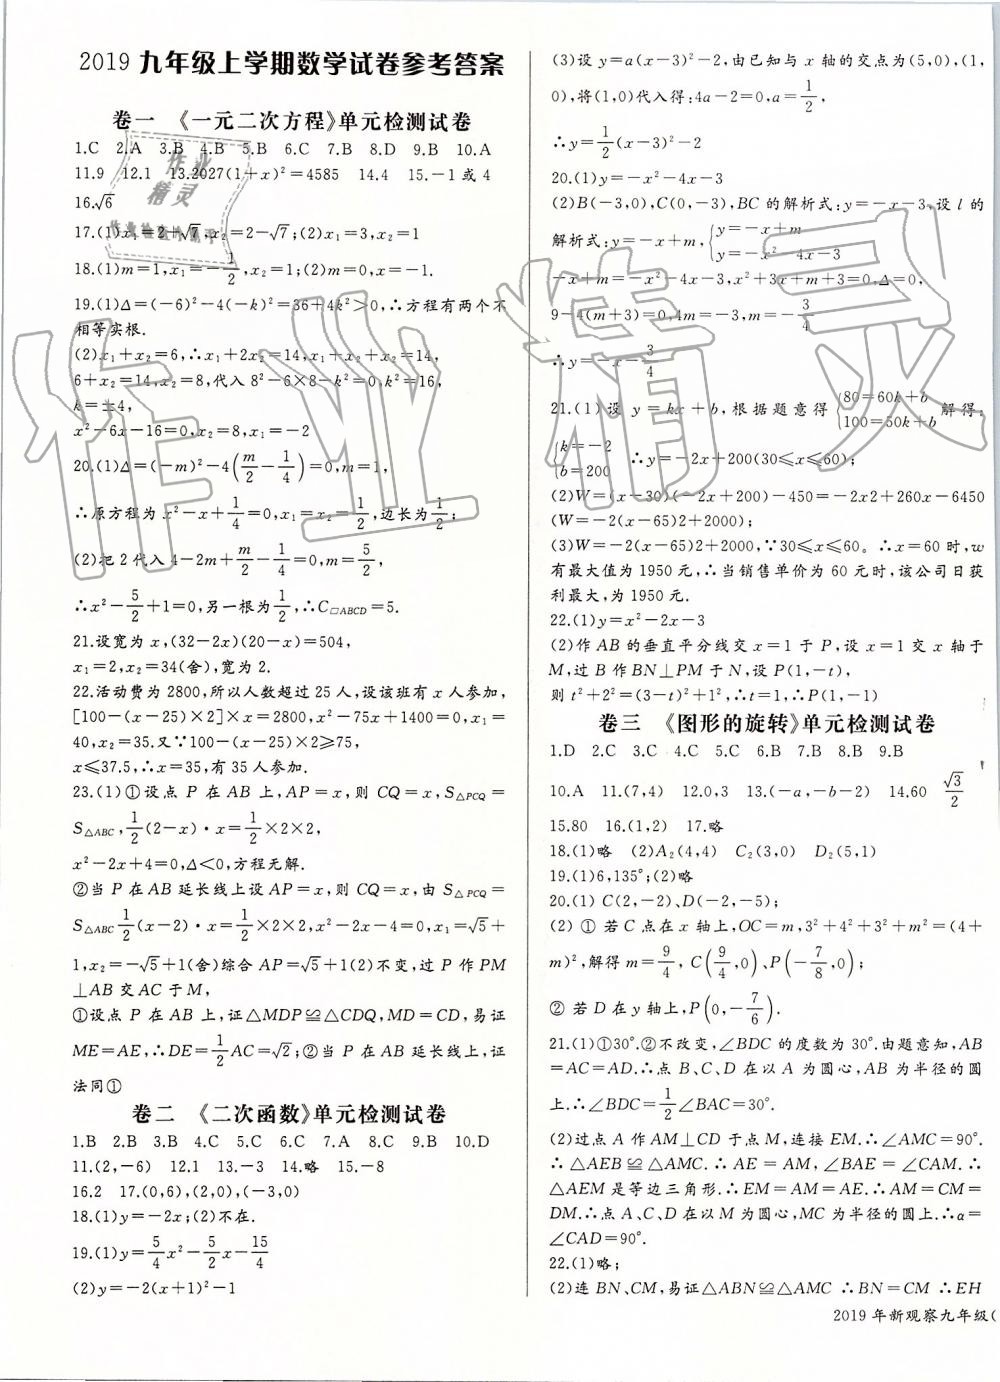 2019 九年级上学期数学试卷参考答案
卷一 《一元二次方程》单元检测试卷
1.C 2.A 3.B 4.B 5.B 6.C 7.B 8.D 9.B 10.A
11.9 12.1 13.2027(1+x)²=4585 14.4 15.-1或4
16.√6
17.(1)x₁=2+√7,x₂=2-√7;(2)x₁=3,x₂=1
18.(1)m=1,x₁=-1/2,x₂=1;(2)m=0,x=-1.
19.(1)Δ=(-6)²-4(-k)²=36+4k²>0,∴方程有两个不
相等实根.
(2)x₁+x₂=6,∴x₁+2x₂=14,x₁+x₂+x₂=14,
6+x₂=14,x₂=8,代入8²-6×8-k²=0,k²=16,
k=±4,
x²-6x-16=0,x₂=8,x₁=-2
20.(1)Δ=(-m)²-4(m/2-1/4)=0,m=1,
∴原方程为x²-x+1/4=0,x₁=x₂=1/2,边长为1/2;
(2)把2代入4-2m+m/2-1/4=0,m=5/2,
∴x²-5/2+1=0,另一根为1/2,∴C□ABCD=5.
21.设宽为x,(32-2x)(20-x)=504,
x₁=2,x₂=34(舍),宽为2.
22.活动费为2800,所以人数超过25人,设该班有x人参加,
[100-(x-25)×2]×x=2800,x²-75x+1400=0,x₁=
40,x₂=35.又∵100-(x-25)×2≥75,
x≤37.5,∴x=35,有35人参加.
23.(1)①设点P在AB上,AP=x,则CQ=x,S△PCQ=
S△ABC,1/2(2-x)·x=1/2×2×2,
x²-2x+4=0,Δ<0,方程无解.
②当P在AB延长线上设AP=x,则CQ=x,由S△PCQ=
S△ABC 1/2(x-2)·x=1/2×2×2,x²-2x-4=0,x₁=√5+
1,x₂=-√5+1(舍)综合AP=√5+1(2)不变,过P作PM
⊥AB交AC于M,
①设点P在AB上,证△MDP≌△CDQ,MD=CD,易证
ME=AE,∴DE=1/2AC=√2;②当P在AB延长线上,证
法同①
卷二 《二次函数》单元检测试卷
1.B 2.B 3.B 4.C 5.C 6.C 7.A 8.C 9.B 10.D
11.(2,-6) 12.1 13.-3 14.略 15.-8
16.2 17.(0,6),(2,0),(-3,0)
18.(1)y=-2x;(2)不在.
19.(1)y=5/4x²-5/2x-15/4
(2)y=-2(x+1)²-1
(3)设y=a(x-3)²-2,由已知与x轴的交点为(5,0),(1,
0),将(1,0)代入得:4a-2=0,a=1/2,
∴y=1/2(x-3)²-2
20.(1)y=-x²-4x-3
(2)B(-3,0),C(0,-3),BC的解析式:y=-x-3,设l的
解析式:y=-x+m,{y=-x+m y=-x²-4x-3
-x+m=-x²-4x-3,x²+3x+m+3=0,Δ=0,
9-4(m+3)=0,4m=-3,m=-3/4
∴y=-x-3/4
21.(1)设y=kx+b,根据题意得{80=60k+b 100=50k+b 解得:
{k=-2 b=200 ∴y=-2x+200(30≤x≤60);
(2)W=(x-30)(-2x+200)-450=-2x2+260x-6450
(W=-2(x-65)2+2000);
(3)W=-2(x-65)2+2000,∵30≤x≤60。∴x=60时,w
有最大值为1950元,∴当销售单价为60元时,该公司日获
利最大,为1950元.
22.(1)y=x²-2x-3
(2)作AB的垂直平分线交x=1于P,设x=1交x轴于
M,过B作BN⊥PM于N,设P(1,-t),
则t²+2²=(3-t)²+1²,∴t=1,∴P(1,-1)
卷三 《图形的旋转》单元检测试卷
1.D 2.C 3.C 4.C 5.C 6.B 7.B 8.B 9.B
10.A 11.(7,4) 12.0,3 13.(-a,-b-2) 14.60 √3/2
15.80 16.(1,2) 17.略
18.(1)略 (2)A₂(4,4) C₂(3,0) D₂(5,1)
19.(1)6,135°;(2)略
20.(1) C(2,-2)、D(-2,-5);
(2) ① 若C点在x轴上,OC=m,3²+4²+3²+m²=(4+
m)²,解得m=9/4, C(9/4,0)、P(-7/8,0);
② 若D在y轴上,P(0,-7/6).
21.(1)①30°.②不改变,∠BDC的度数为30°.由题意知,AB
=AC=AD.∴点B、C、D在以A为圆心,AB为半径的圆
上.∴∠BDC=1/2∠BAC=30°.
(2)过点A作AM⊥CD于点M,连接EM.∴∠AMC=90°.
∴△AEB≌△AMC.∴AE=AM,∠BAE=∠CAM.∴
△AEM是等边三角形.∴EM=AM=AE.∴AM=CM=
DM.∴点A、C、D在以M为圆心,MC为半径的圆上.∴α=
∠CAD=90°.
22.(1)略;
(2)连BN,CM,易证△ABN≌△AMC ∴BN=CM ∴EH
2019年新观察九年级(
作业精灵
作业精灵